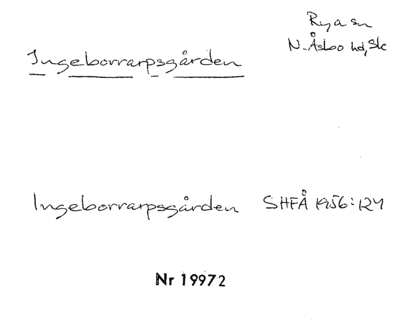 Rya sn
Ingeborrarpsgården N. Åsbo hd, Sk
Ingeborrarpsgården SHFÅ 1956:124
Nr 19972